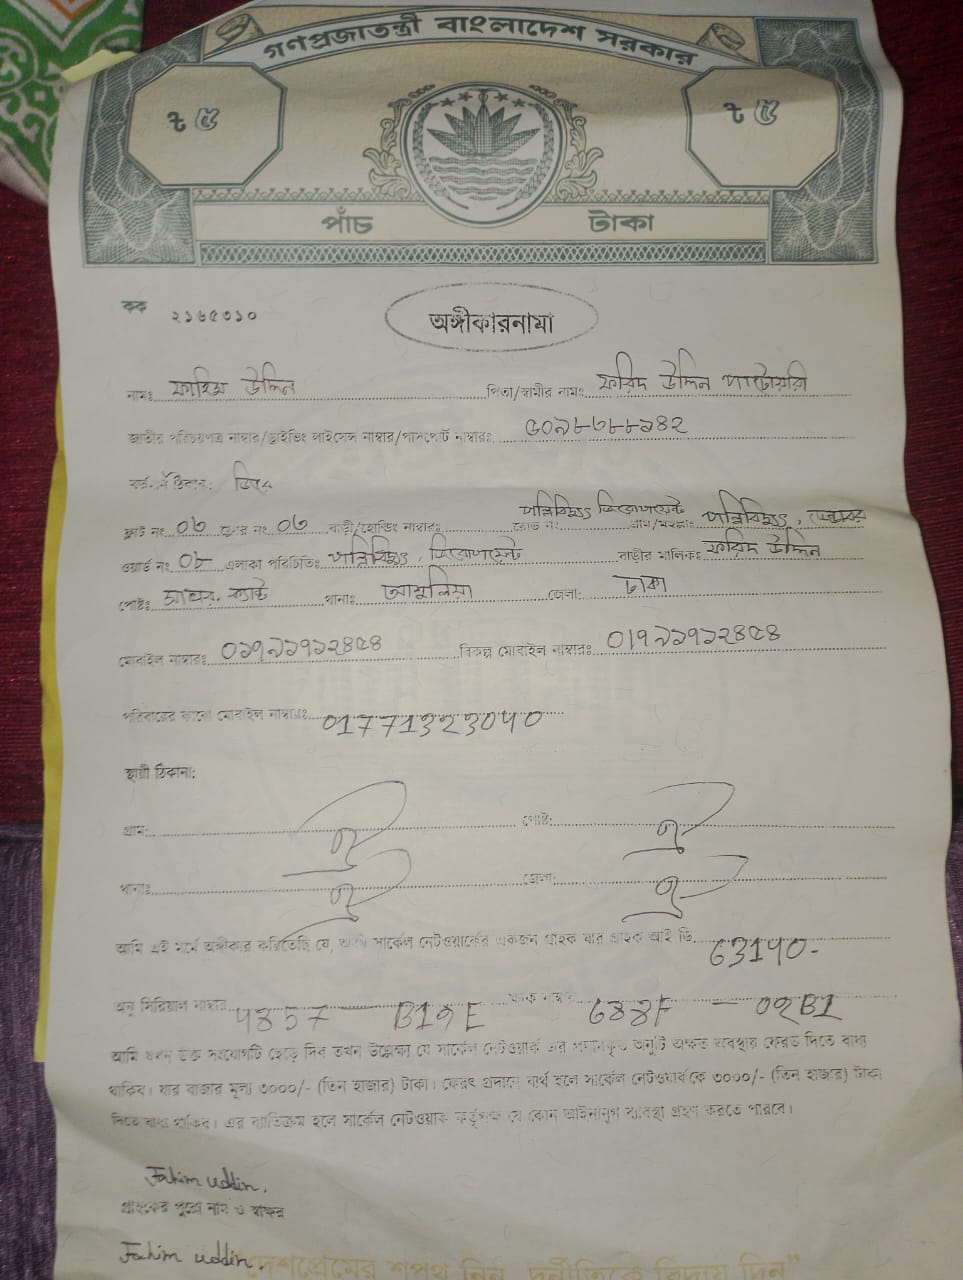 গণপ্রজাতন্ত্রী বাংলাদেশ সরকার
৳ ৫ ৳ ৫
পাঁচ টাকা
কক ২১৬৫৩১০
অঙ্গীকারনামা
নামঃ ফাহিম উদ্দিন পিতা/স্বামীর নামঃ ফরিদ উদ্দিন পাটোয়ারী
জাতীয় পরিচয়পত্র নাম্বার/ড্রাইভিং লাইসেন্স নাম্বার/পাসপোর্ট নাম্বারঃ ৬০৯৮৩৮৮৯৪২
বর্তমান ঠিকানা:
ফ্লাট নং ০৬ ফ্লোর নং ০৬ বাড়ী/হোল্ডিং নাম্বারঃ রোড নং গ্রাম/মহল্লাঃ পল্লিবিদ্যুৎ,
ওয়ার্ড নং ০৮ এলাকা পরিচিতিঃ পল্লিবিদ্যুৎ, বাড়ীর মালিকঃ ফরিদ উদ্দিন
পোষ্টঃ থানাঃ আশুলিয়া জেলা: ঢাকা
মোবাইল নাম্বারঃ ০১৭৯১৭১২৪৫৪ বিকল্প মোবাইল নাম্বারঃ 01৭৯১৭১২৪৫৪
পরিবারের কারো মোবাইল নাম্বারঃ
স্থায়ী ঠিকানা:
গ্রাম: পোষ্ট:
থানাঃ জেলা:
আমি এই মর্মে অঙ্গীকার করিতেছি যে, আমি সার্কেল নেটওয়ার্কের একজন গ্রাহক যার গ্রাহক আই ডি
অনু সিরিয়াল নাম্বার
আমি যখন উক্ত সংযোগটি ছেড়ে দিব তখন উল্লেক্ষ্য যে সার্কেল নেটওয়ার্ক এর অনুটি অক্ষত অবস্থায় ফেরত দিতে বাধ্য
থাকিব। যার বাজার মূল্য ৩০০০/- (তিন হাজার) টাকা। ফেরৎ প্রদানে ব্যর্থ হলে সার্কেল নেটওয়ার্ককে ৩০০০/- (তিন হাজার) টাকা
দিতে বাধ্য থাকিব। এর ব্যতিক্রম হলে সার্কেল নেটওয়ার্ক কর্তৃপক্ষ যে কোন আইনানুগ ব্যবস্থা গ্রহণ করতে পারবে।
Fahim uddin.
গ্রাহকের পুরো নাম ও স্বাক্ষর
Fahim uddin.
দেশপ্রেমের শপথ নিন, দুর্নীতিকে বিদায় দিন"